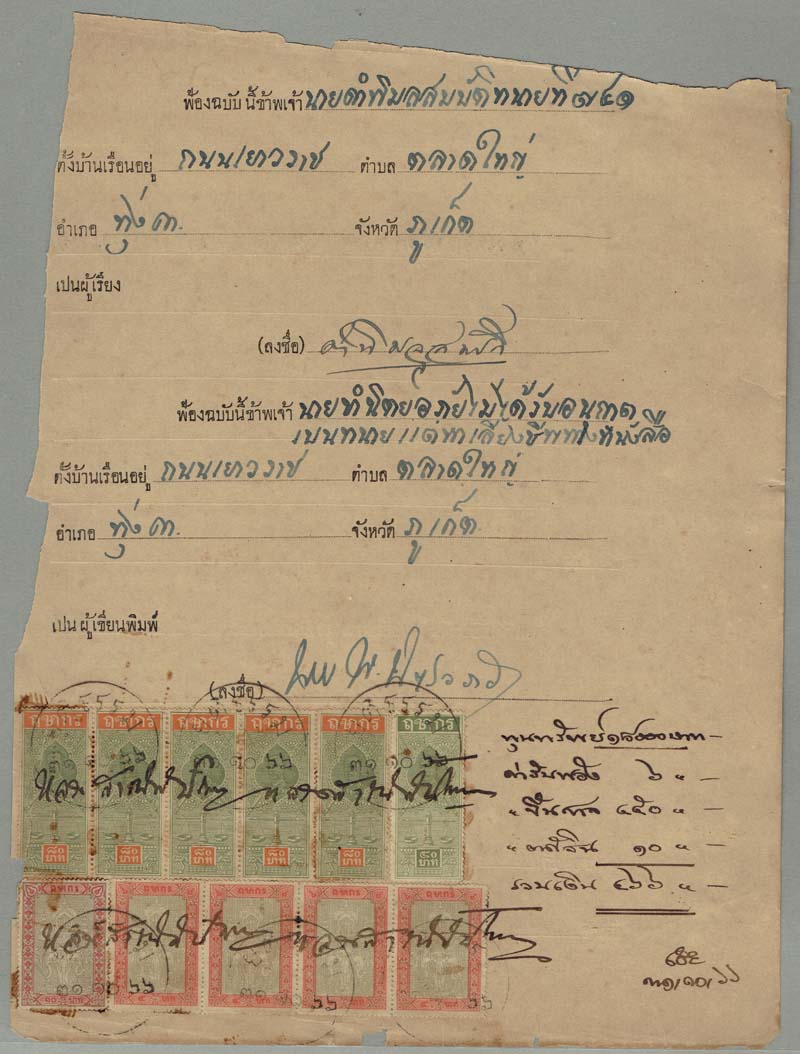 ฟ้องฉบับนี้ข้าพเจ้า นายคำพิมลสมบัติทนายที่๗๔๑
ตั้งบ้านเรือนอยู่ ถนนเยาวราช ตำบล ตลาดใหญ่
อำเภอ ทุ่งคา จังหวัด ภูเก็ต
เปนผู้เรียง
(ลงชื่อ)
ฟ้องฉบับนี้ข้าพเจ้า ไม่ได้รับอนุญาต
เปนทนาย แต่หาเลี้ยงชีพทางหนังสือ
ตั้งบ้านเรือนอยู่ ถนนเยาวราช ตำบล ตลาดใหญ่
อำเภอ ทุ่งคา จังหวัด ภูเก็ต
เปนผู้เขียนพิมพ์
(ลงชื่อ)
ฤชากร ฤชากร ฤชากร ฤชากร ฤชากร ฤชากร
๓๑ ๑๐ ๖๖
๘๐ บาท ๘๐ บาท ๘๐ บาท ๘๐ บาท ๘๐ บาท ๔๐ บาท
ทุนทรัพย์
ค่ารับฟ้อง ๖ " —
" ขึ้นศาล ๔๕๐ " —
" ๑๐ " —
รวมเงิน ๔๖๖ " —
ฤชากร ฤชากร ฤชากร ฤชากร ฤชากร
๓๑ ๑๐ ๖๖
๑๐ บาท ๔ บาท ๔ บาท ๔ บาท ๔ บาท
๓๑/๑๐/๖๖